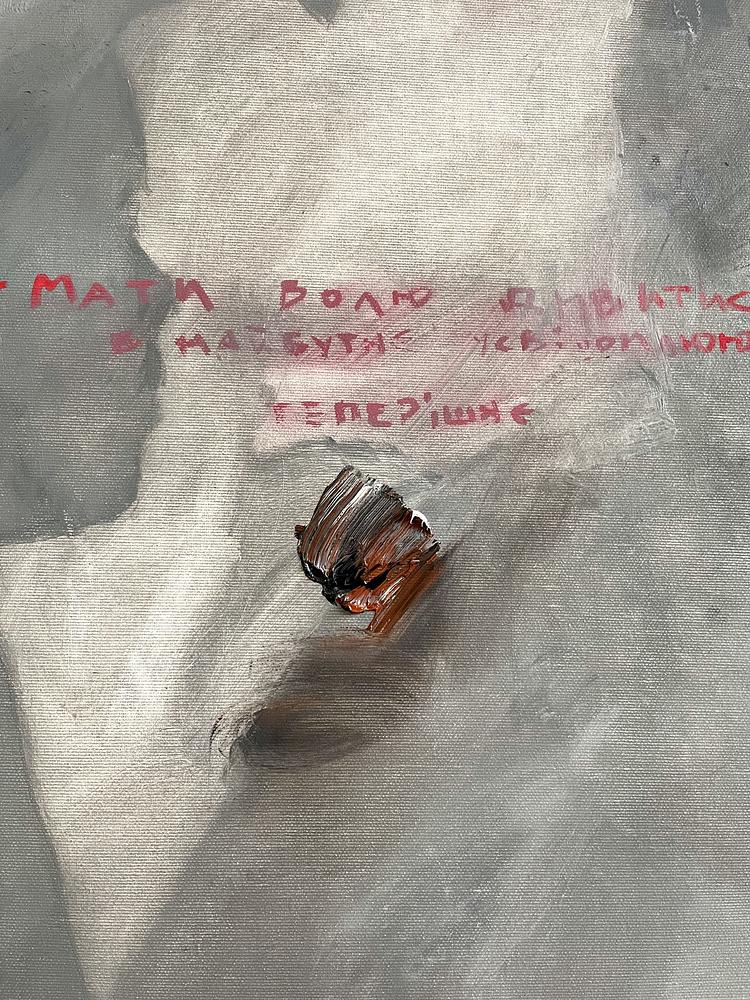 МАТИ ВОЛЮ ДИВИТИС
В МАЙБУТНЄ УСВІДОМЛЮЮ
ТЕПЕРІШНЄ